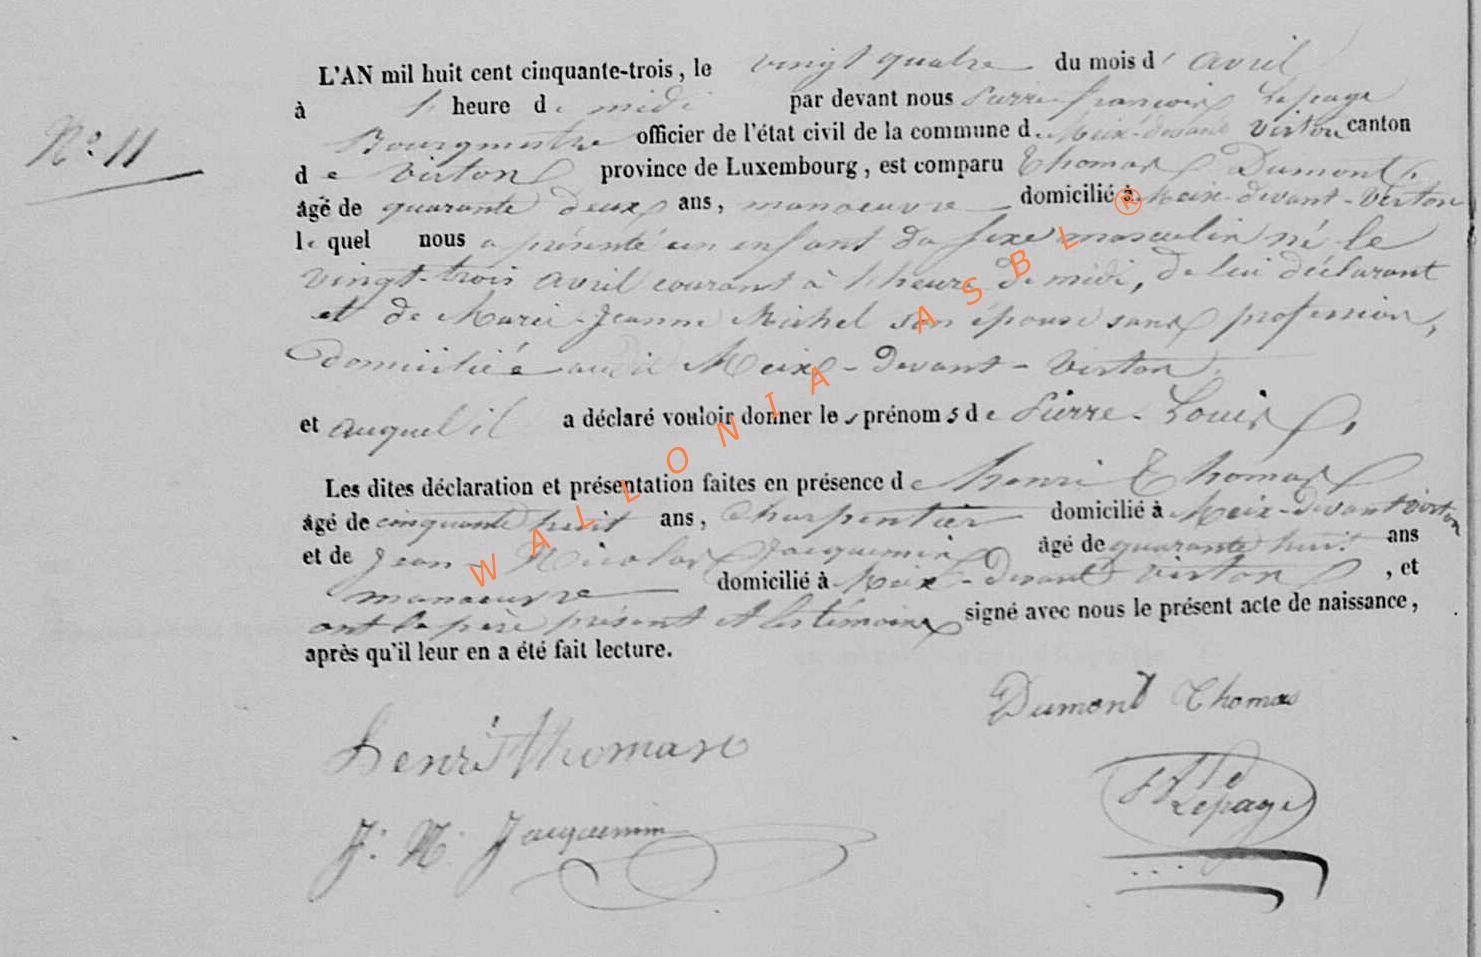 N° 11
L'AN mil huit cent cinquante-trois, le vingt quatre du mois d' avril
à 1 heure de midi par devant nous Pierre françois Lepage
Bourgmestre officier de l'état civil de la commune de Meix-devant Virton canton
de Virton province de Luxembourg, est comparu Thomas Dumont,
âgé de quarante deux ans, manoeuvre domicilié à Meix-devant-Virton
lequel nous a présenté un enfant du sexe masculin né le
vingt-trois avril courant à 1 heure de midi, de lui déclarant
et de Marie-Jeanne Michel son épouse sans profession,
domiciliée audit Meix-devant-Virton,
et auquel il a déclaré vouloir donner les prénoms de Pierre-Louis,
Les dites déclaration et présentation faites en présence de henri Thomas
âgé de cinquante huit ans, Charpentier domicilié à Meix-devant Virton
et de Jean Nicolas Jacquemin âgé de quarante huit ans
manoeuvre domicilié à Meix-devant Virton, et
ont le père présent et les témoins signé avec nous le présent acte de naissance,
après qu'il leur en a été fait lecture.
Dumont Thomas
henri thomas
Lepage
J. N. Jacquemin
WALLONIA ASBL ®